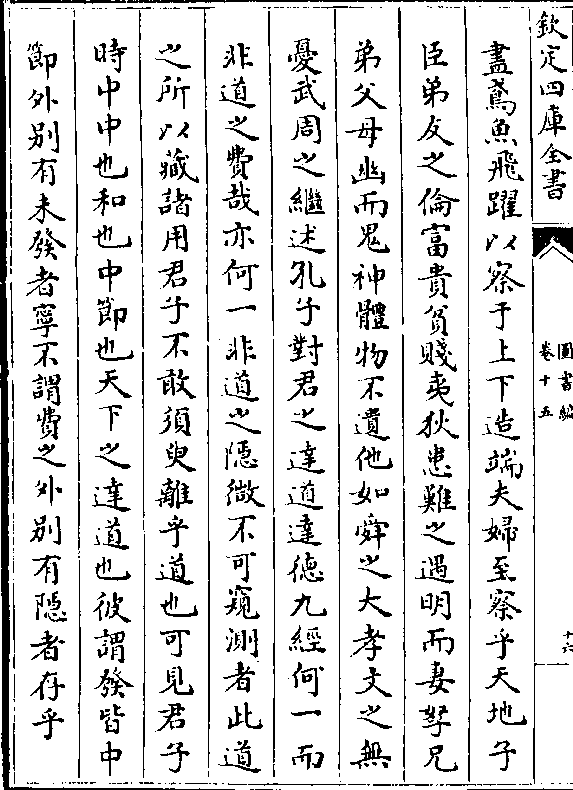 欽定四庫全書
圖書編
卷十五
十六
盡鳶魚飛躍以察于上下造端夫婦至察乎天地子
臣弟友之倫富貴貧賤夷狄患難之遇明而妻孥兄
弟父母幽而鬼神體物不遺他如舜之大孝文之無
憂武周之繼述孔子對君之達道達德九經何一而
非道之費哉亦何一非道之隱微不可窺測者此道
之所以藏諸用君子不敢須臾離乎道也可見君子
時中中也和也中節也天下之達道也彼謂發皆中
節外别有未發者寧不謂費之外别有隱者存乎